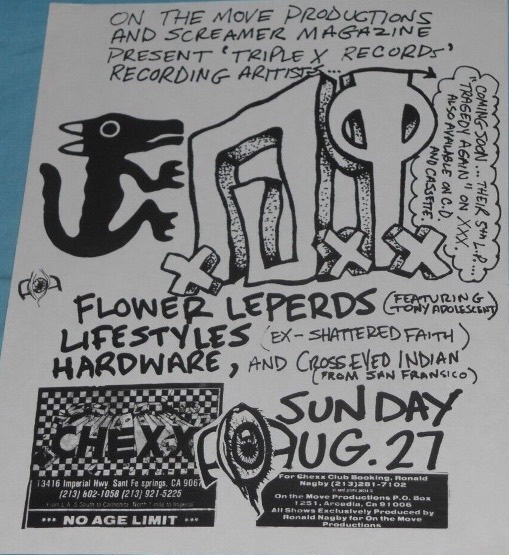 ON THE MOVE PRODUCTIONS
AND SCREAMER MAGAZINE
PRESENT 'TRIPLE X RECORDS'
RECORDING ARITISTS...
D.I.
XXX
"COMING SOON... THEIR 5TH L.P...
TRAGEDY AGAIN" ON XXX.
ALSO AVAILABLE ON C.D.
AND CASSETTE.
FLOWER LEPERDS (FEATURING
TONY ADOLESCENT)
LIFESTYLES (EX-SHATTERED FAITH)
HARDWARE, AND CROSSEYED INDIAN
(FROM SAN FRANSICO)
CHEXX
13416 Imperial Hwy. Sant Fe springs, CA 9067
(213) 802-1058 (213) 921-5225
*** NO AGE LIMIT ***
SUNDAY
AUG. 27
For Chexx Club Booking, Ronald
Nagby (213)281-7102
On the Move Productions P.O. Box
1251, Arcadia, Ca 91006
All Shows Exclusively Produced by
Ronald Nagby for On the Move
Productions